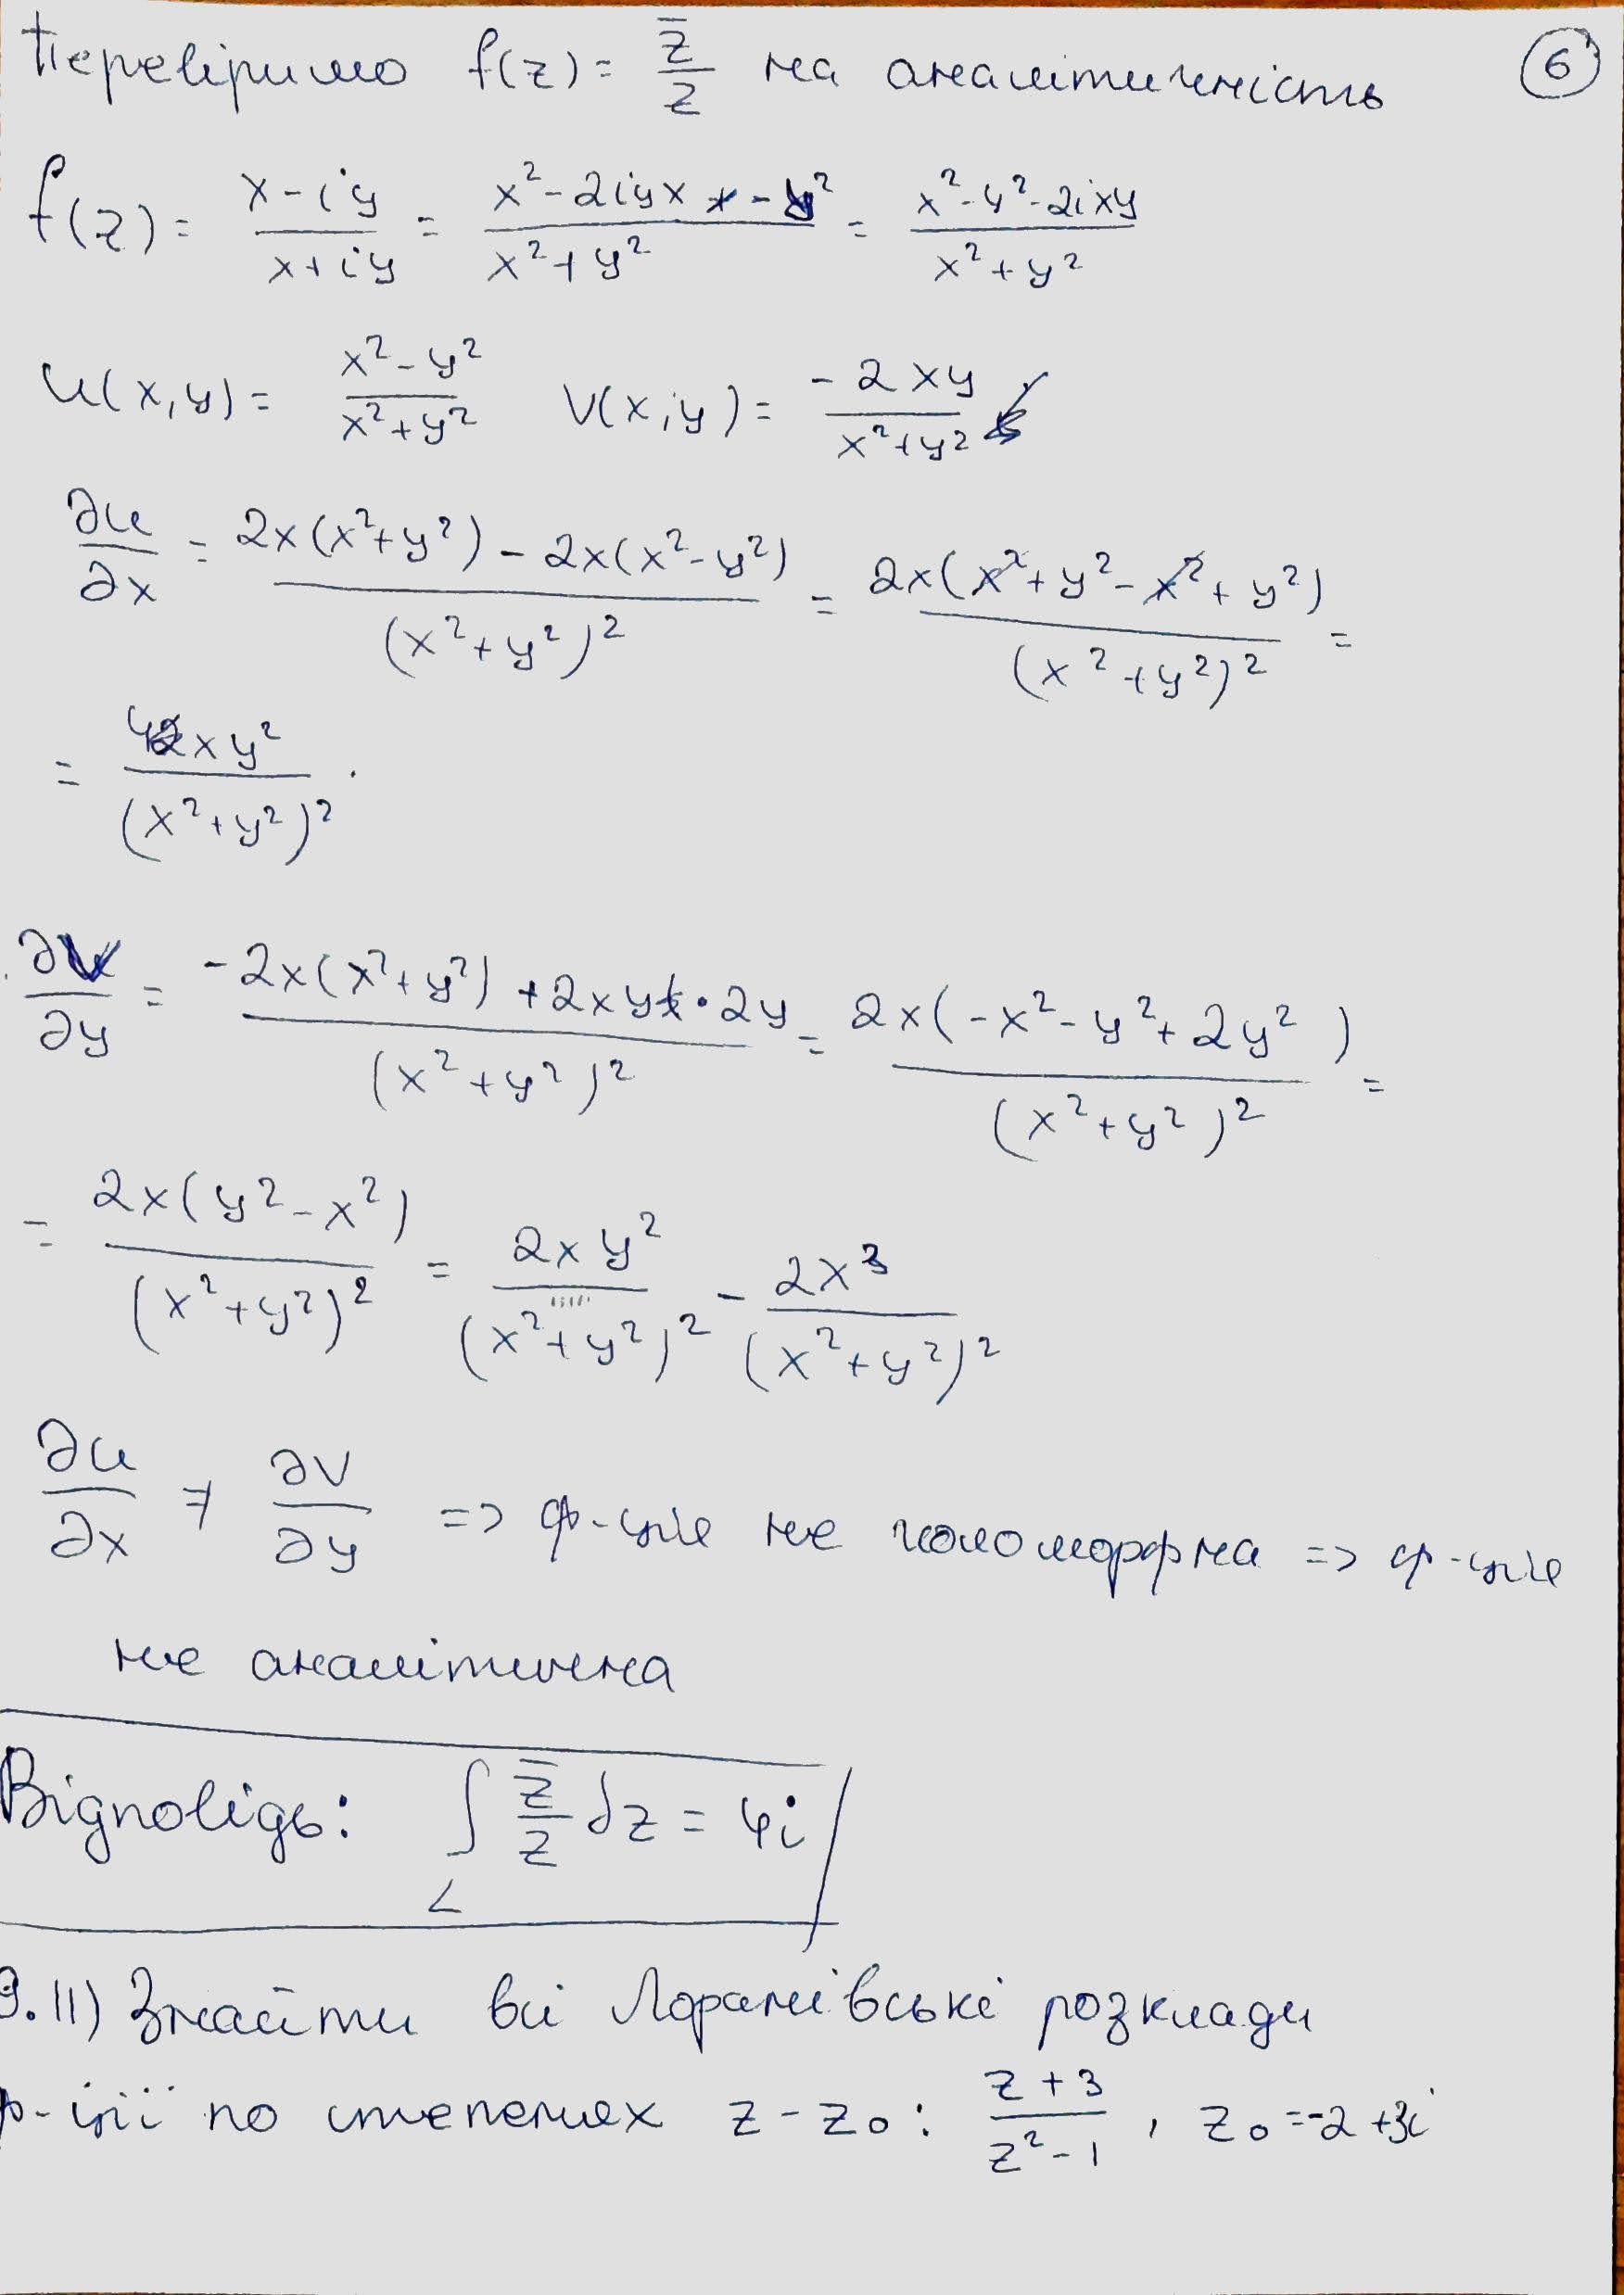 Перевіримо f(z) = z̄/z на аналітичність ⑥
f(z) = (x-iy)/(x+iy) = (x²-2iyx - y²)/(x²+y²) = (x²-y²-2ixy)/(x²+y²)
u(x,y) = (x²-y²)/(x²+y²) V(x,y) = (-2xy)/(x²+y²)
∂u/∂x = (2x(x²+y²) - 2x(x²-y²))/((x²+y²)²) = (2x(x²+y²-x²+y²))/((x²+y²)²) =
= (4xy²)/((x²+y²)²).
∂V/∂y = (-2x(x²+y²) + 2xy·2y)/((x²+y²)²) = (2x(-x²-y²+2y²))/((x²+y²)²) =
= (2x(y²-x²))/((x²+y²)²) = (2xy²)/((x²+y²)²) - (2x³)/((x²+y²)²)
∂u/∂x ≠ ∂V/∂y => ф-ція не голоморфна => ф-ція
не аналітична
Відповідь: ∫_L z̄/z dz = 4i
9.11) Знайти всі Лоранівські розклади
ф-ції по степенях z-z₀: (z+3)/(z²-1), z₀=-2+3i